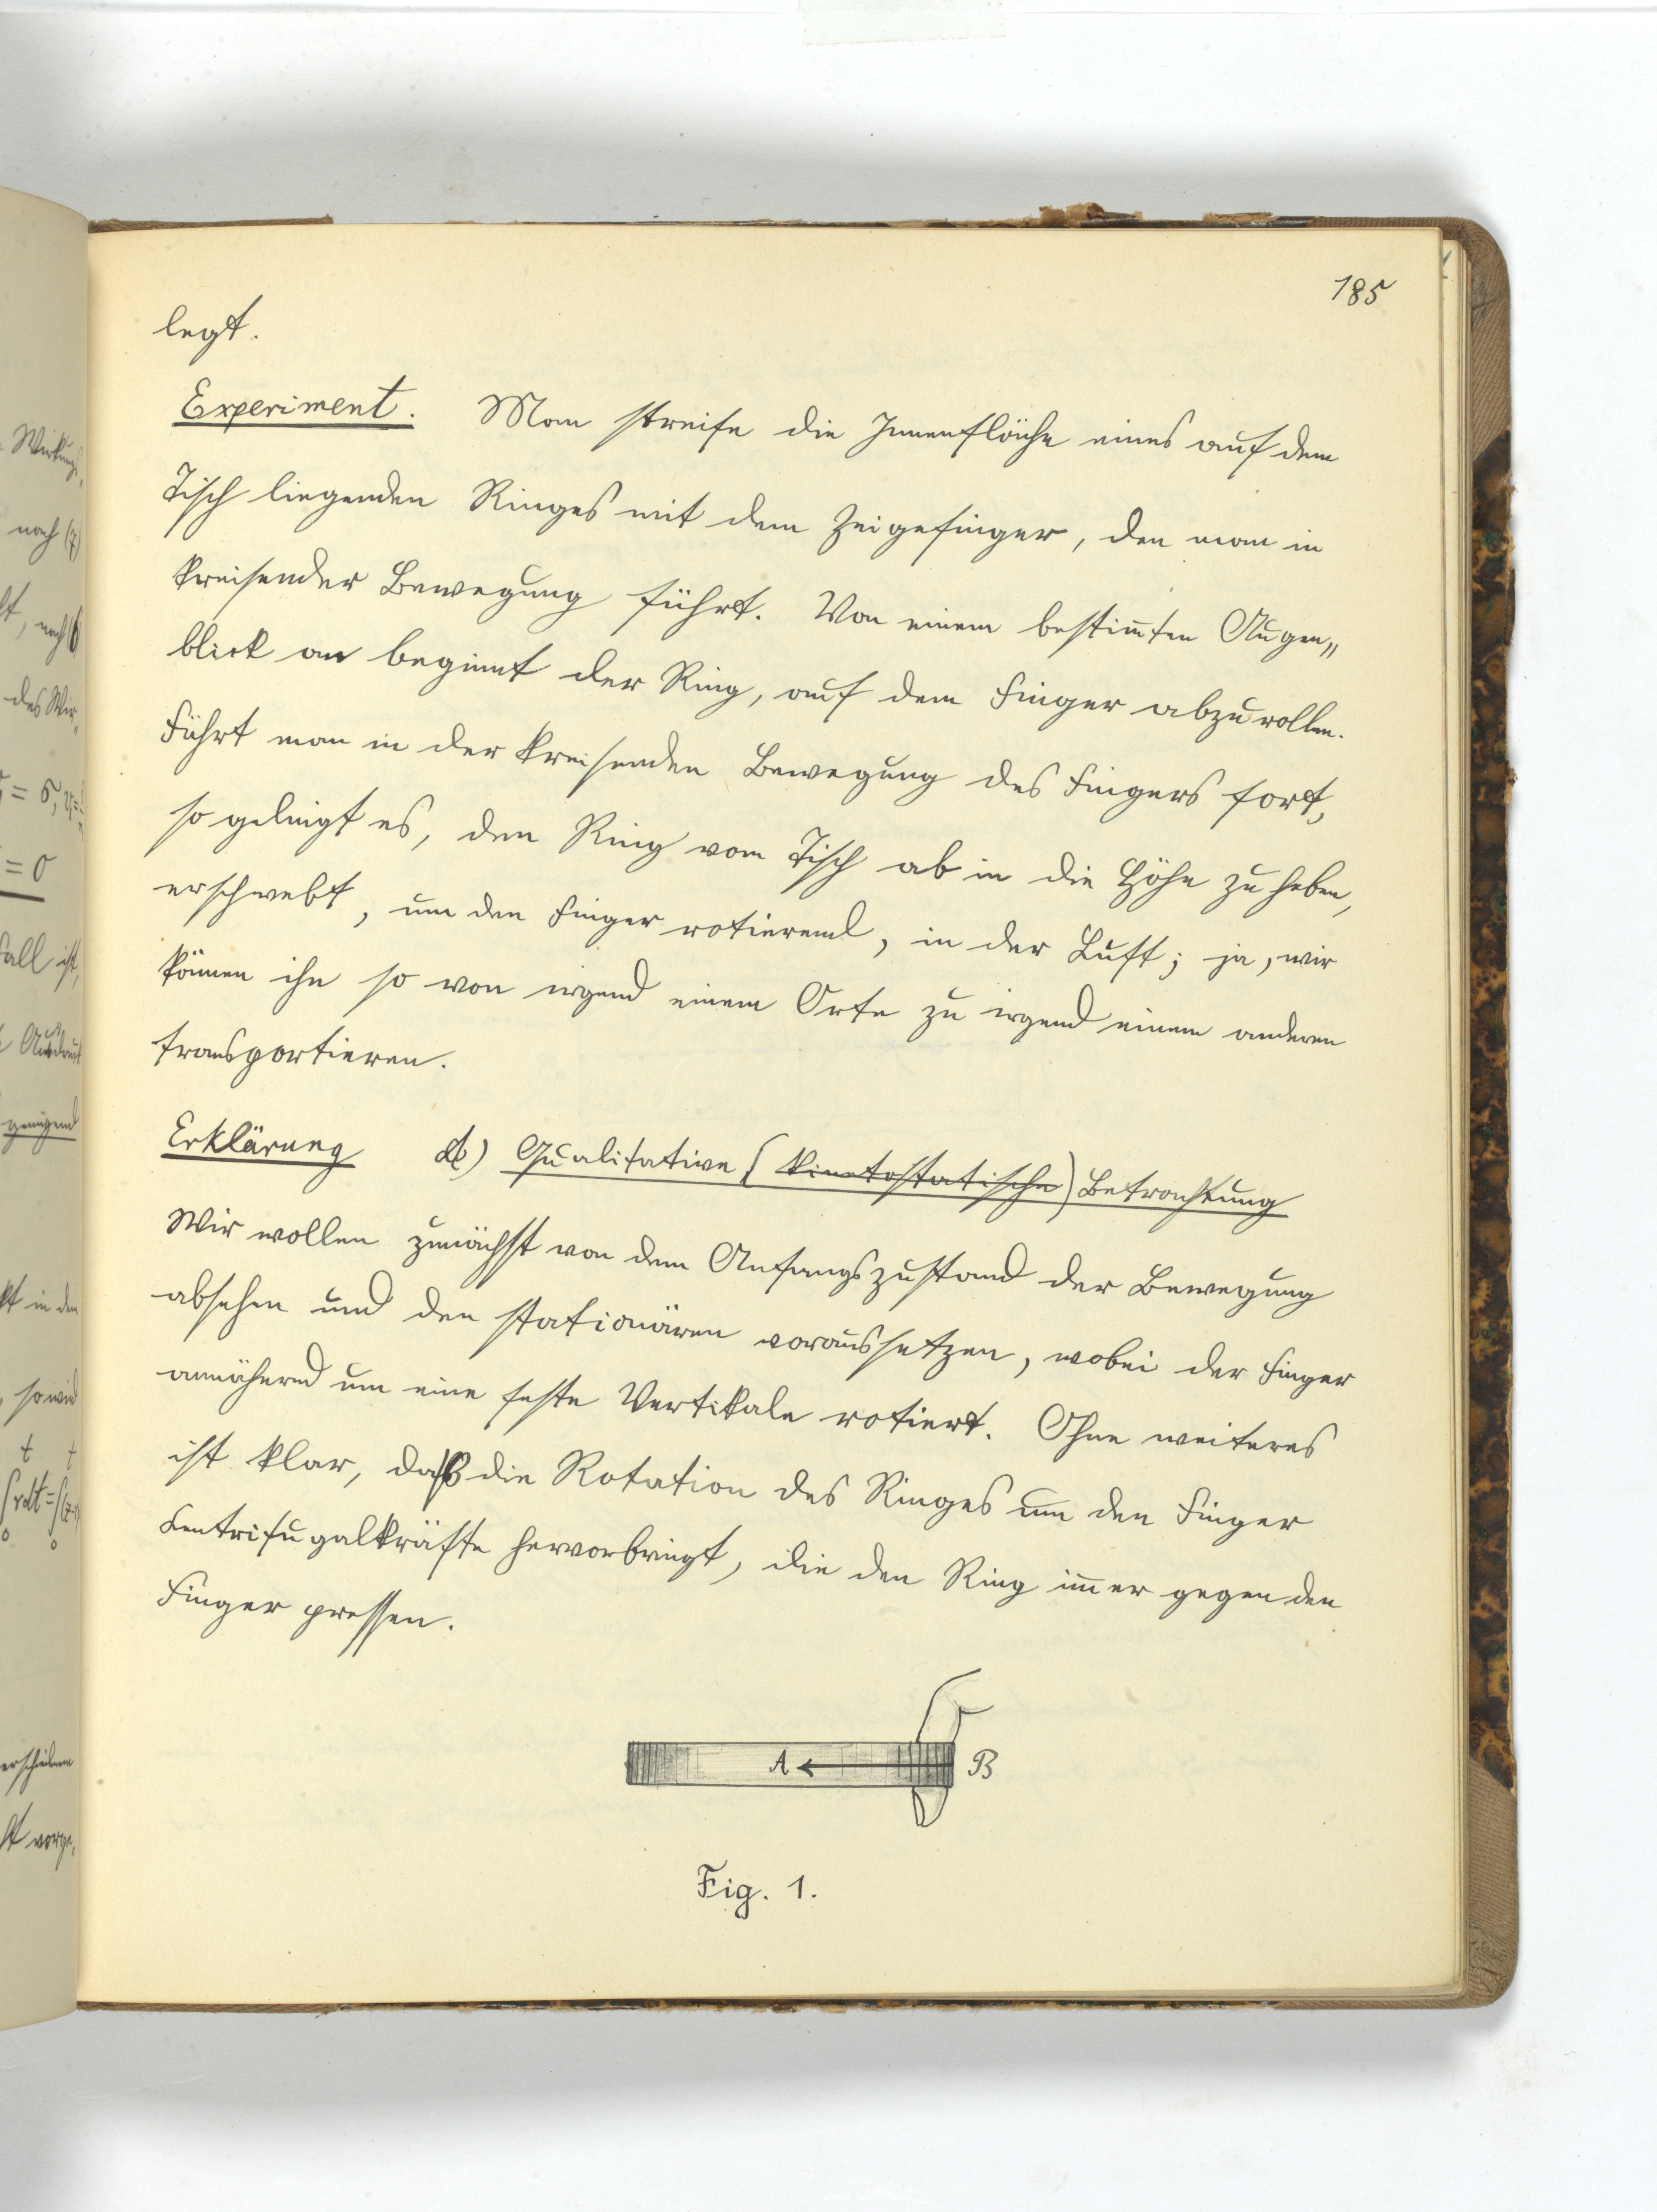 185
legt.
Experiment. Man streife die Innenfläche eines auf dem
Tisch liegenden Ringes mit dem Zeigefinger, den man in
kreisender Bewegung führt. Von einem bestim̄ten Augen„
blick an beginnt der Ring, auf dem Finger abzurollen.
Führt man in der kreisenden Bewegung des Fingers fort,
so gelingt es, den Ring vom Tisch ab in die Höhe zu heben,
er schwebt, um den Finger rotierend, in der Luft; ja, wir
können ihn so von irgend einem Orte zu irgend einem anderen
transportieren.
Erklärung A) Qualitative (kinetostatische) Betrachtung
Wir wollen zunächst von dem Anfangszustand der Bewegung
absehen und den stationären voraussetzen, wobei der Finger
annähernd um eine feste Vertikale rotiert. Ohne weiteres
ist klar, daß die Rotation des Ringes um den Finger
Centrifugalkräfte hervorbringt, die den Ring im̄er gegen den
Finger pressen.
A B
Fig. 1.
Wirkungs
nach (7)
des Wir
= 0
genügend
so wird